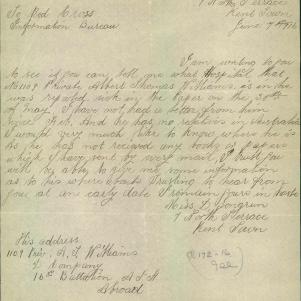 7 North Terrace
To Red Cross
Kent Town
Information Bureau
June 7th 1916
I am writing to you
to see if you can tell me what Hospital that
No 1109 Private Albert Thomas Williams is in he
was reported sick in the Paper on the 30th
of May. I have not had a letter from him
since Feb. And he has no relatives in Australia
I would very much like to know where he is
As he has not received any books or papers
which I have sent by every mail, I trust you
will be able to give me some information
as to his where abouts Trusting to hear from
you at an early date I remain yours in haste
Miss L
7 North Terrace
Kent Town
His address
1109 Priv. A. T. Williams
Company
Battalion A I F
Abroad